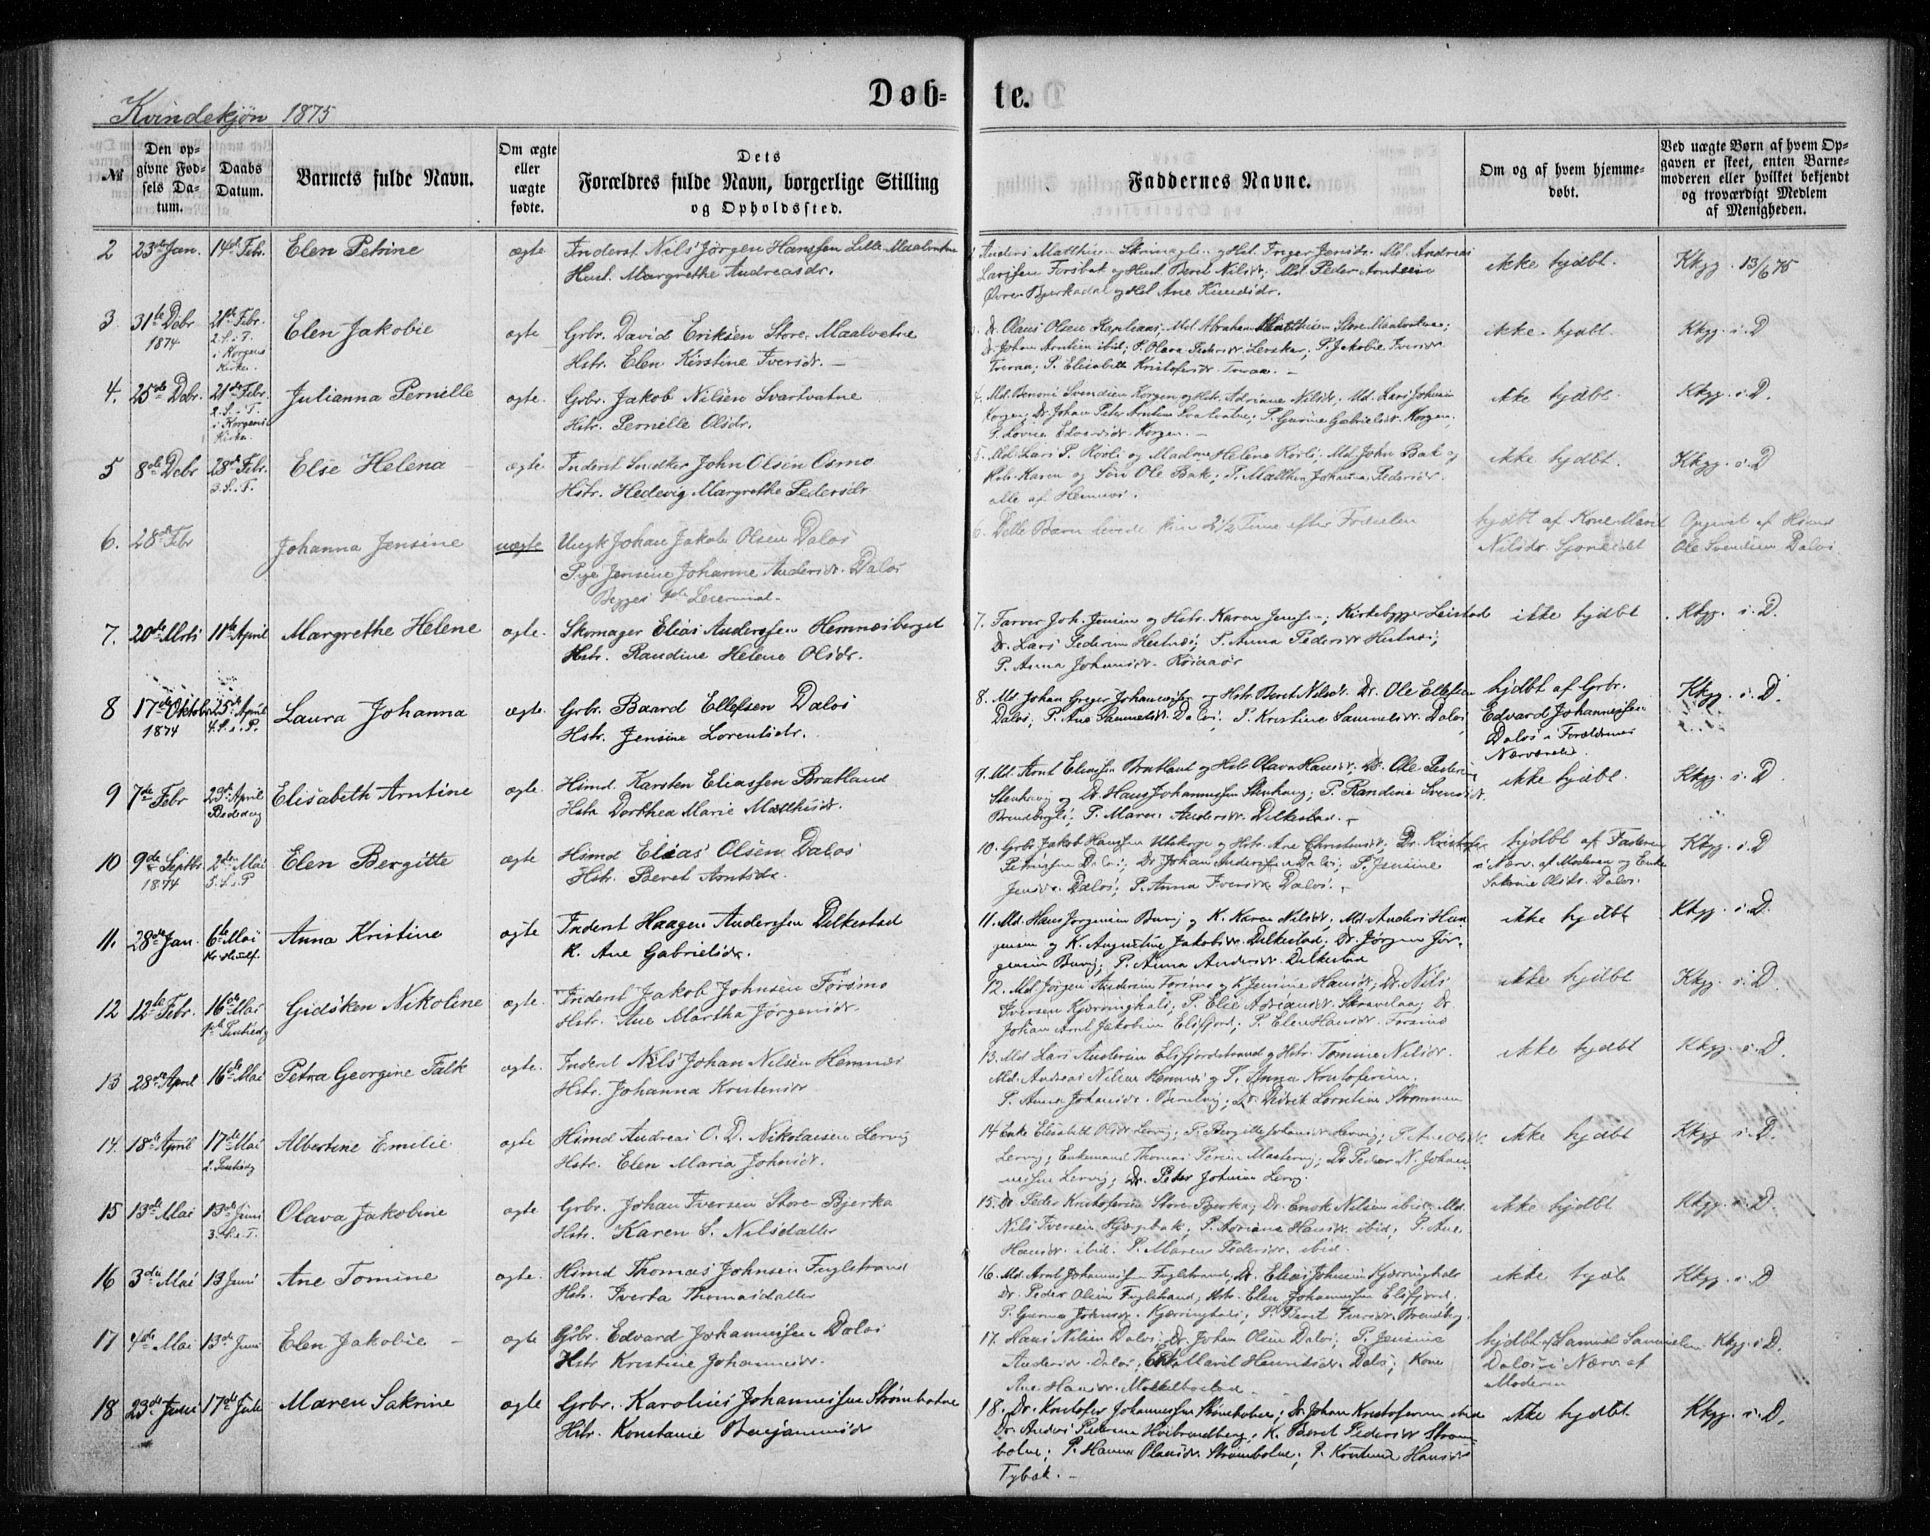 Kvindekjøn 1875
Døb-
te.
№
Den op-
givne Fød-
sels Da-
tum.
Daabs
Datum.
Barnets fulde Navn.
Om ægte
eller
uægte
fødte.
Dets
Forældres fulde Navn, borgerlige Stilling
og Opholdssted.
Faddernes Navne.
Om og af hvem hjemme-
døbt.
Ved uægte Børn af hvem Op-
gaven er skeet, enten Barne-
moderen eller hvilket bekjendt
og troværdigt Medlem
af Menigheden.
2 23de Jan. 14de Febr. Elen Petrine ægte Inderst Nils Jørgen Hanssen Lille Maalvatne
Hust. Margrethe Andreasdr.
Larssen Forsbak og Hust. Beret Nilsdr. Md Peder Arntsen
Øvre Bjerkadal og Hst Ane Knudsdr.
ikke hjdbt. Kkgg. 13/6 75
3. 31te Debr. 1874 21de Febr. 2. S. i F. i Korgens Kirke. Elen Jakobie ægte Grbr. David Eriksen Store Maalvatne
Hstr. Elen Kirstine Iversdr. —
Dr. Johan Arntsen ibid; P. Olava Pedersdr. Lerskar; P. Jakobie Iversdr.
Tveraa; P. Elisabeth Kristofersdr. Tveraa. —
ikke hjdbt. Kkgg. i. D
4. 25de Debr. 21de Febr. 2. S. i F. i Korgens Kirke. Julianna Pernille ægte. Grbr. Jakob Nilsen Svartvatne
Hstr. Pernille Olsdr.
4. Md. Benoni Svendsen Korgen og Hstr. Adriane Nilsdr. Md. Lars Johnsen
Korgen; Dr. Johan Peter Arntsen Svartvatne; P. Gurine Gabrielsdr. Korgen;
P. Lovise Edvardsdr. Korgen. —
ikke hjdbt. Kkgg. i. D.
5 8de Debr 28de Febr. 3. S. i F. Else Helena ægte. Inderst Snedker John Olsen Osmo
Hstr. Hedevig Margrethe Pedersdr
5. Md. Lars P. Korli og Madme Helene Korli; Md. John Bak og
Hstr. Karen og Søn Ole Bak; P. Matthea Johanna Pedersdr.
alle af Hemnes.
ikke hjdbt. Kkgg. i. D
6. 28de Febr Johanna Jensine uægte Ungk Johan Jakob Olsen Dalos
Pige Jensine Johanne Andersdr. Dalos
Begges 1ste Leiermaal.
6. Dette Barn levede kun 2½ Time efter Fødselen
hjdbt af Kone Marit
Nilsdr. Sjoneidet
Opgivet af Hsmd
Ole Svendsen Dalos.
7. 20de Mrts 11te April Margrethe Helene ægte. Skomager Elias Anderssen Hemnesberget
Hstr. Randine Helene Olsdr.
7. Farver Joh. Jensen og Hstr. Karen Jensen; Kirkebygger Leistad
Dr. Lars Pedersen Hestnes; P. Anna Pedersdr Hestnes;
P. Anna Johansdr. Røsaaør
ikke hjdbt Kkgg. i. D.
8 17de Oktobr 1874 25de April 4. S. e. P. Laura Johanna ægte. Grbr. Baard Ellefsen Dalos
Hstr. Jensine Lorentsdr.
8. Md. Johan Greger Johannessen og Hstr Beret Nilsdr. Dr. Ole Ellefsen
Dalos; P. Ane Samuelsdr Dalos; P. Kristine Samuelsdr. Dalos;
hjdbt af Grbr.
Edvard Johannessen
Dalos i Forældrenes
Nærværelse
Kkgg. i. D.
9 7de Febr 23de April Bededag Elisabeth Arntine ægte. Hsmd. Karsten Eliassen Bratland
Hstr. Dorthea Marie Matthisdr.
9. Md. Arnt Eliassen Bratland og Hstr. Olava Hansdr; Dr. Ole Pedersen
Stenhaug og Dr. Hans Johannessen Stenhaug; P. Randine Svensdr.
Brendbergli; P. Maren Andersdr. Delkestad. —
ikke hjdbt. Kkgg. i. D
10 9de Septbr 1874 2den Mai 5. S. e. P Elen Bergitte ægte Hsmd Elias Olsen Dalos
Hstr. Beret Arntsdr.
10. Grbr. Jakob Hanssen Utskarpe og Hstr. Ane Christensdr. Dr. Kristofer
Petersen Dalos; Dr. Johan Anderssen Dalos; P. Jensine
Jensdr. Dalos; P. Anna Iversdr. Dalos. —
hjdbt af Faderen
i Nærv. af Moderen og Enke
Sakrine Olsdr. Dalos.
Kkgg. i. D
11. 28de Jan. 6te Mai Kr. Himlf. Anna Kristine ægte Inderst Haagen Anderssen Delkestad
K. Ane Gabrielsdr.
11. Md. Hans Jørgensen Bunvj og K. Karen Nilsdr, Md. Anders Haa-
gensen og K. Augustine Jakobsdr. Delkestad; Dr. Jørgen Jør-
gensen Bunvj; P. Anna Andersdr. Delkestad
ikke hjdbt Kkgg. i. D.
12 12te Febr. 16de Mai 1ste Pintsedg Gidsken Nikoline ægte. Inderst Jakob Johnsen Forsmo
Hstr. Ane Martha Jørgensdr.
12. Md Jørgen Andersen Forsmo og K Jensine Hansdr; Dr. Nils
Iversen Kjærringhals; P. Elie Adriansdr. Skravelaa; Dr
Johan Arnt Jakobsen Elsfjord; P. Elen Hansdr. Forsmo
ikke hjdbt Kkgg. i. D.
13 28de April 16de Mai Petra Georgine Falk ægte. Inderst Nils Johan Nilsen Hemnes
Hstr. Johanna Kristensdr
13. Md Lars Andersen Elsfjordstrand og Hstr. Tomine Nilsdr.
Md. Andreas Nilsen Hemnes og P. Anna Kristofersen.
P. Anna Johansdr. Brentvig; Dr. Didrik Lorntsen Strømmen
ikke hjdbt Kkgg. i. D.
14. 18de April 17de Mai 2. Pintsedg Albertine Emilie ægte Hsmd Andreas O. D. Nikolaisen Lervig
Hstr. Elen Maria Johnsdr.
14 Enke Elisabeth Olsdr Lervig; P. Bergitte Johansdr Lervig; P. Ane Olsdr
Lervig; Enkemand Thomas Persen Mastervig; Dr Peder N. Johan-
nessen Lervig; Dr. Peder Johnsen Lervg.
ikke hjdbt Kkgg. i. D.
15 13de Mai 13de Juni 3. S. e. T. Olava Jakobine ægte Grbr. Johan Iversen Store Bjerka
Hstr. Karen S. Nilsdatter
15. Dr. Peder Kristofersen Store Bjerka; Dr. Enok Nilsen ibid; Md.
Nils Iversen Hjægbak; P. Adriane Hansdr. ibid; P. Ane
Hansdr. ibid. P. Maren Pedersdr. ibid.
ikke hjdbt Kkgg. i. D.
16 3die Mai 13 Juni Ane Tomine ægte. Hsmd Thomas Johnsen Fuglstrand
Hstr. Iverta Thomasdatter
16. Md. Arnt Johannessen Fuglstrand; Dr. Elias Johnsen Kjærringhals
Dr. Peder Olsen Fuglstrand; Hstr. Elen Johannessen Elsfjord.
P. Gurina Johnsdr. Kjærringhals; P. Beret Iversdr. Brendbg.
ikke hjdbt Kkgg. i. D
17 4de Mai 13de Juni Elen Jakobie — ægte Grbr. Edvard Johannessen Dalos
Hstr Kristine Johannesdr.
17. Hans Nilsen Dalos; Dr. Johan Olsen Dalos; P. Jensine
Andersdr. Dalos; Marit Henriksdr. Dalos; Kone
Ane Hansdr.
hjdbt af Samuel Samuelsen
Dalos i Nærv. af
Moderen
Kkgg. i. D.
18 23de Juni 17de Juli Maren Sakrine ægte Grbr. Karolius Johannessen Strømbotne
Hstr. Konstanse Benjaminsdr
18. Dr. Kristofer Johannessen Strømbotne; Dr. Johan Kristofersen ibid
Dr. Anders Pedersen Hvibrendberg; K. Beret Pedersdr Strøm-
botne; P. Hanna Olausdr. Strømbotne; P. Kristine Hansdr
Tybæk. —
ikke hjdbt Kkgg. i. D.